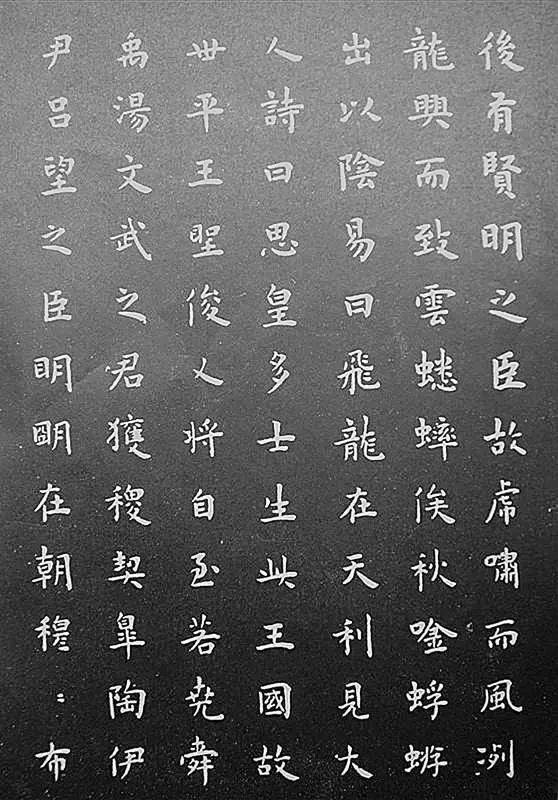 後有賢明之臣故虎嘯而風冽
龍興而致雲蟋蟀俟秋唫蜉蝣
出以陰易曰飛龍在天利見大
人詩曰思皇多士生此王國故
世平王聖俊乂將自至若堯舜
禹湯文武之君獲稷契皐陶伊
尹呂望之臣明明在朝穆〻布